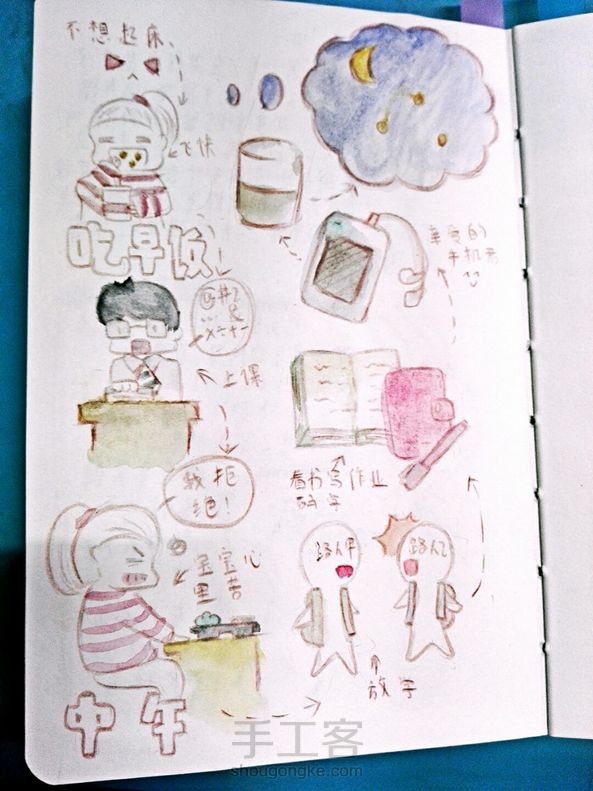 不想起床
吃早饭
@#2
&
...
x÷+-
上课
我拒
绝!
宝宝心
里苦
中午
放学
路人甲
路人乙
看书写作业
码字
亲爱的
手机君
手工客
shougongke.com